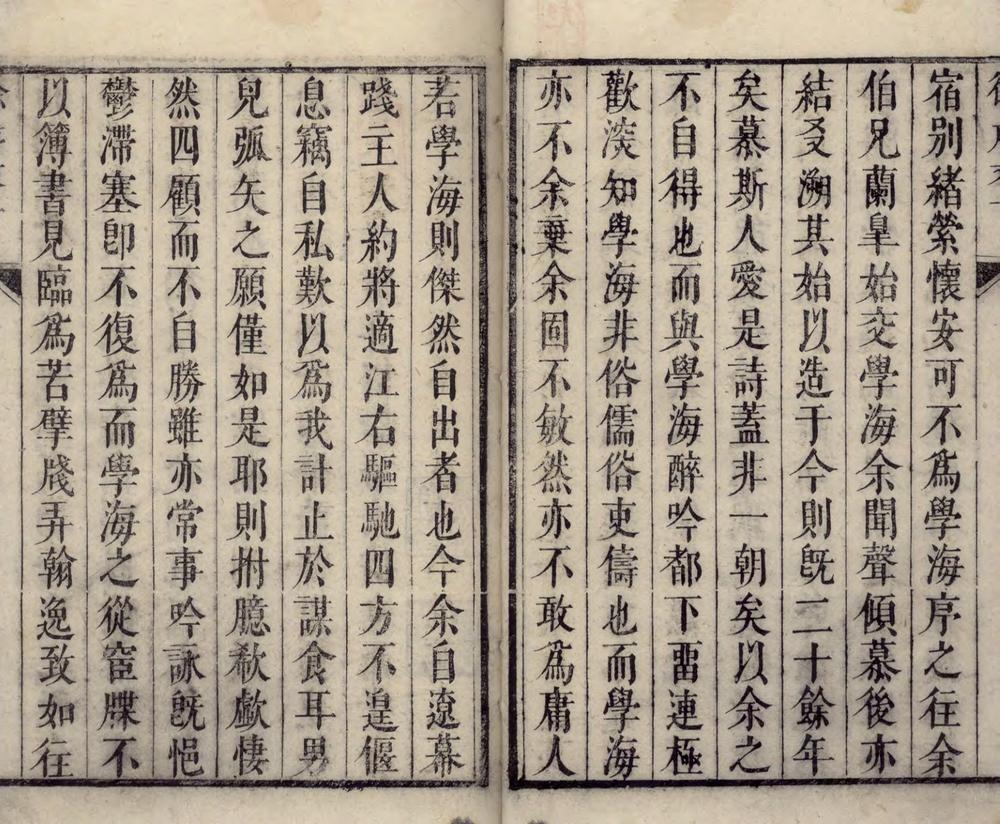 宿別緒縈懷安可不爲學海序之往余
伯兄蘭臯始交學海余聞聲傾慕後亦
結叐溯其始以造于今則旣二十餘年
矣慕斯人愛是詩蓋非一朝矣以余之
不自得也而與學海醉吟都下畱連極
歡淡知學海非俗儒俗吏儔也而學海
亦不余棄余固不敏然亦不敢爲庸人
若學海則傑然自出者也今余自遼幕
踐主人約將適江右驅馳四方不遑偃
息竊自私歎以爲我計止於謀食耳男
兒弧矢之願僅如是耶則拊臆欷歔悽
然四顧而不自勝雖亦常事吟詠旣悒
鬱滯塞卽不復爲而學海之從宦牒不
以簿書見臨爲苦擘牋弄翰逸致如往